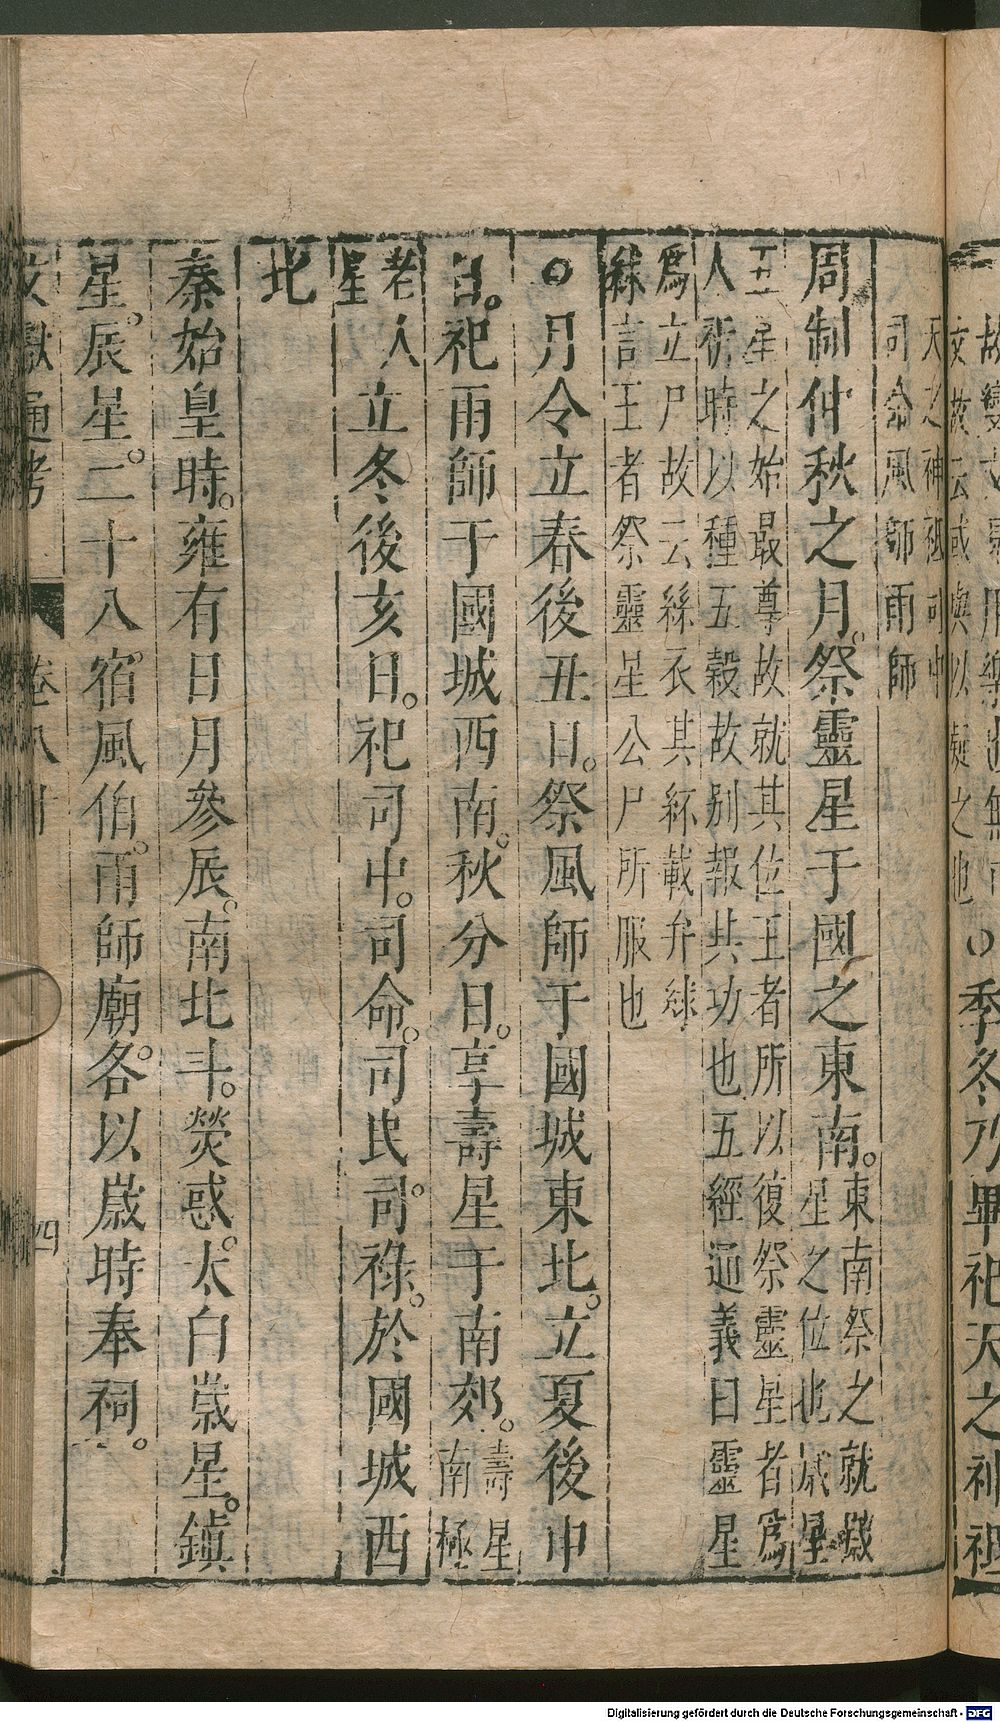 天之神祗司中
司命風師雨師
周制仲秋之月。祭靈星于國之東南。東南祭之就歲
星之位也歲星
五星之始最尊故就其位王者所以復祭靈星者爲
人祈時以種五穀故別報其功也五經通義曰靈星
爲立尸故云絲衣其紑載弁俅
絲言王者祭靈星公尸所服也
○月令立春後丑日。祭風師于國城東北。立夏後申
日。祀雨師于國城西南。秋分日。享壽星于南郊。壽星
南極
老人
星
立冬後亥日。祀司中。司命。司民。司祿。於國城西
北
秦始皇時。雍有日月參辰。南北斗。熒惑。太白歲星。鎮
星。辰星。二十八。宿風伯。雨師廟。各以歲時奉祠。
文獻通考 卷八十 四
季冬乃畢祀天之神祗
Digitalisierung gefördert durch die Deutsche Forschungsgemeinschaft - DFG